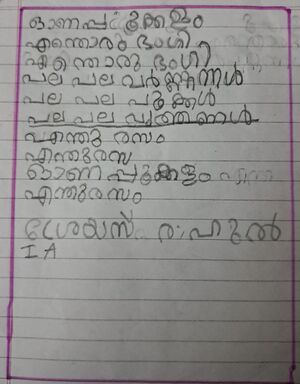 ഓണപ്പൂക്കളം
എന്തൊരു ഭംഗി
എന്തൊരു ഭംഗി
പല പല വർണ്ണങ്ങൾ
പല പല പൂക്കൾ
പല പല
എന്തു രസം
എന്തുരസ
ഓണപ്പൂക്കളം
എന്തുരസം
ശ്രേയസ് രാഹുൽ
I A